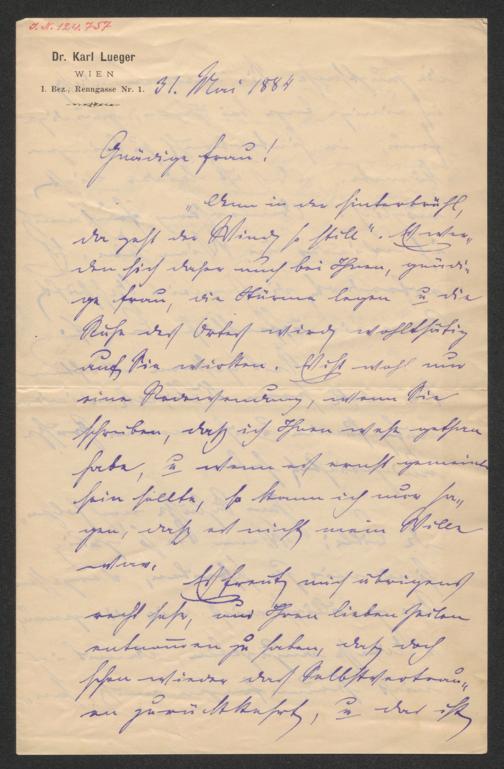 J.N. 124.757
Dr. Karl Lueger
WIEN
I. Bez., Renngasse Nr. 1.
31. Mai 1884
Gnädige Frau!
„Denn in der Hinterbrühl,
da geht der Wind so still“. Es wer-
den sich daher auch bei Ihnen, gnädi-
ge Frau, die Stürme legen u die
Ruhe des Ortes wird wohlthätig
auf Sie wirken. Es ist wohl nur
eine Redewendung, wenn Sie
schreiben, daß ich Ihnen wehe gethan
habe, u wenn es ernst gemeint
sein sollte, so kann ich nur sa-
gen, daß es nicht mein Wille
war.
Es freut mich übrigens
recht sehr, aus Ihren lieben Zeilen
entnommen zu haben, daß doch
schon wieder das Selbstvertrau-
en zurückkehrt, u das ist